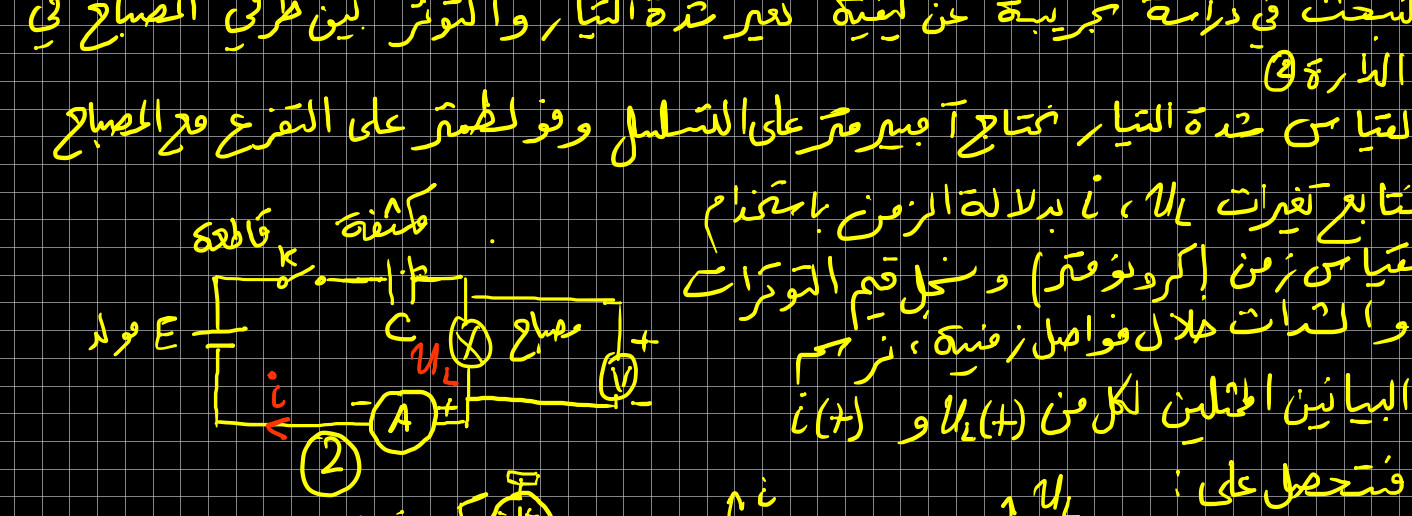 لنبحث في دراسة تجريبية عن كيفية تغير شدة التيار والتوتر بين طرفي المصباح في
الدارة ②
لقياس شدة التيار نحتاج آمبير متر على التسلسل وفولطمتر على التفرع مع المصباح
نتابع تغيرات u_L، i بدلالة الزمن باستخدام
مقياس زمن (كرونومتر) ونسجل قيم التوترات
والشدات خلال فواصل زمنية، نرسم
البيانين الممثلين لكل من u_L(t) و i(t)
فنتحصل على:
قاطعة
مكثفة
K
C
مولد E
مصباح
u_L
V
+
-
i
-
A
+
2
i
u_L